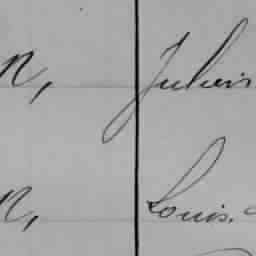 n, Julius
n, Louis.